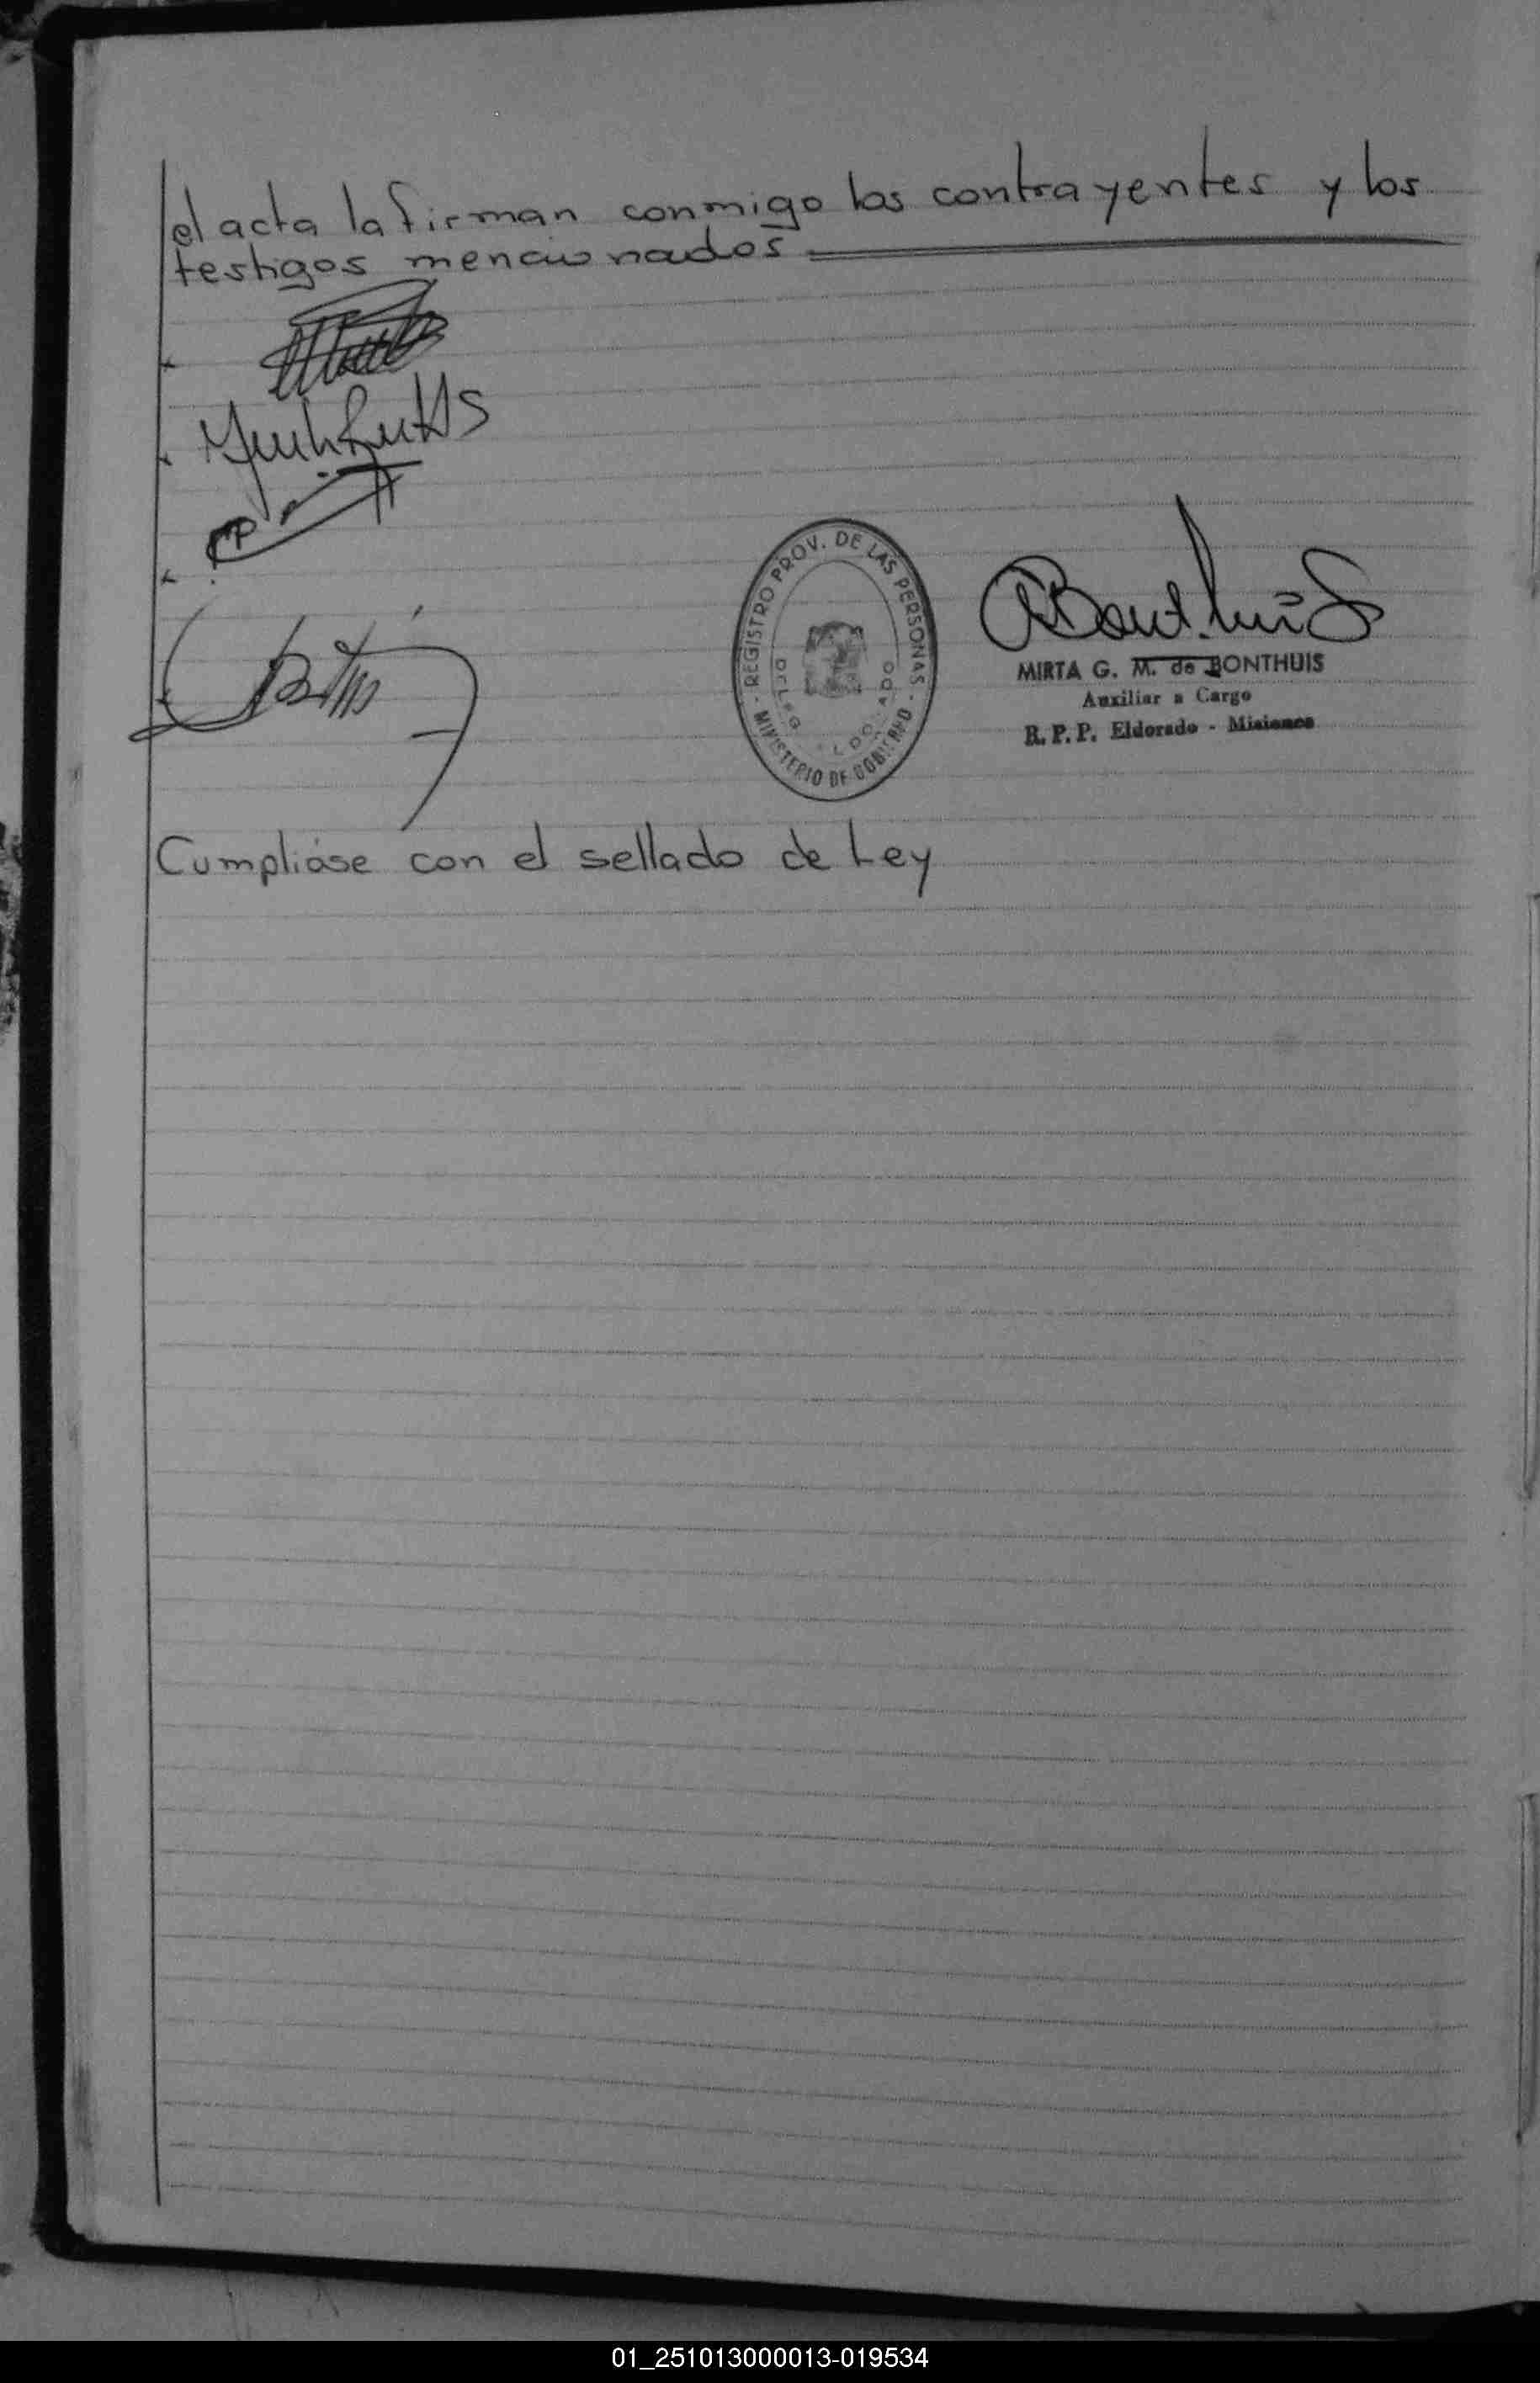 el acta la firman conmigo los contrayentes y los
testigos mencionados
REGISTRO PROV. DE LAS PERSONAS - MINISTERIO DE GOBIERNO -
MIRTA G. M. de BONTHUIS
Auxiliar a Cargo
R. P. P. Eldorado - Misiones
Cumpliáse con el sellado de Ley
01_251013000013-019534